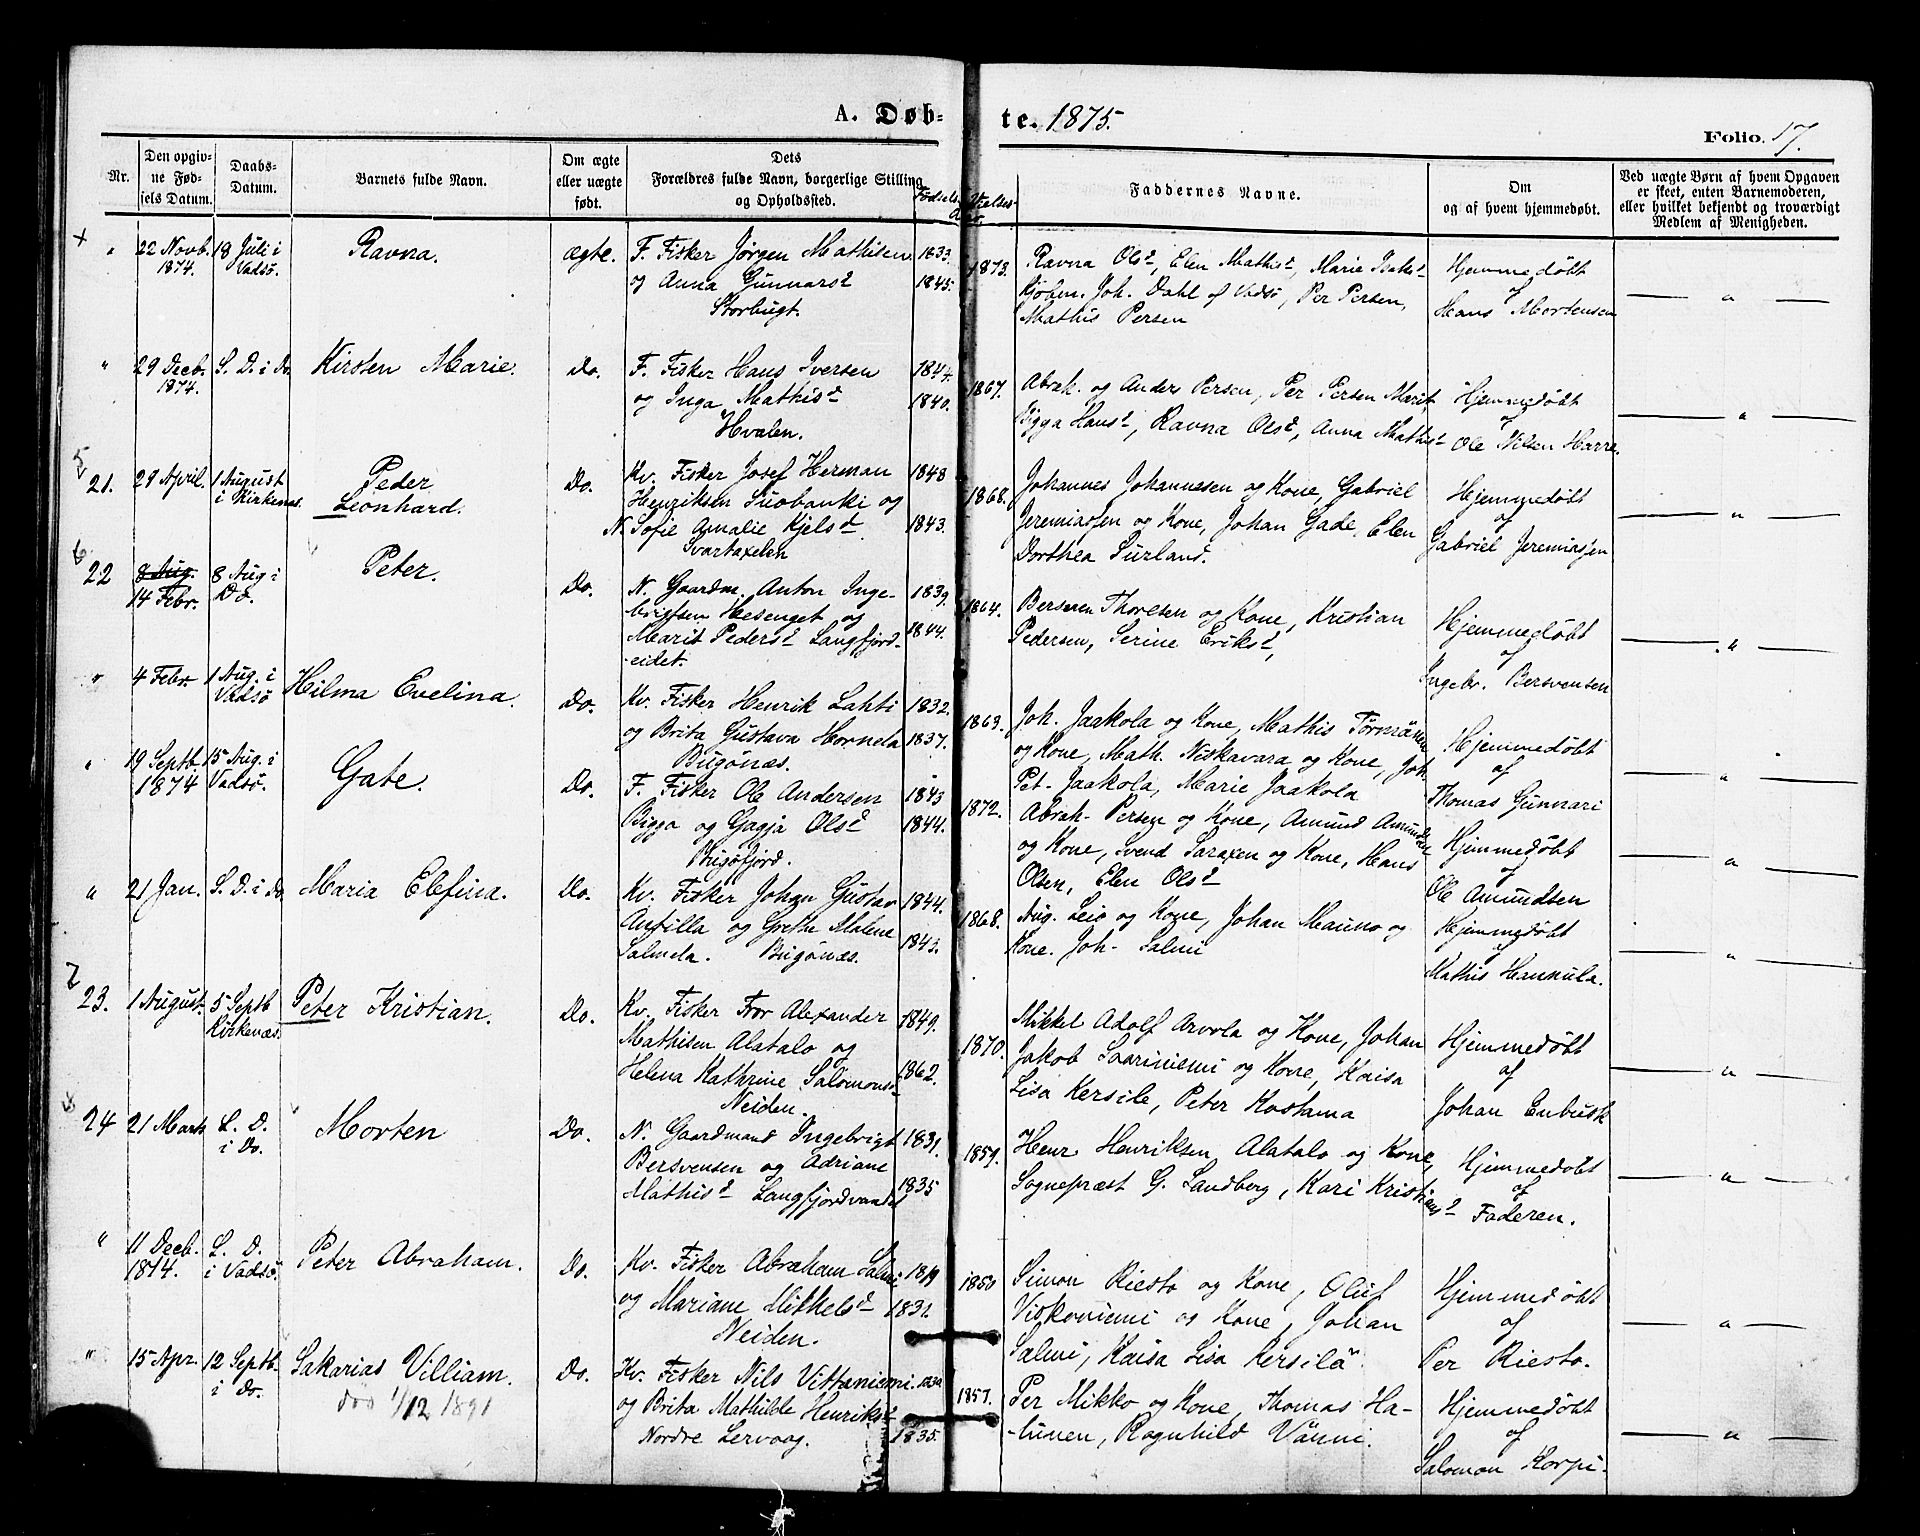 A. Døb-
te. 1875.
Folio. 17.
Nr.
Den opgiv-
ne Fød-
sels Datum.
Daabs-
Datum.
Barnets fulde Navn.
Om ægte
eller uægte
født.
Dets
Forældres fulde Navn, borgerlige Stilling
og Opholdssted.
Fødsels
Vielses-
Aar.
Faddernes Navne.
Om
og af hvem hjemmedøbt.
Ved uægte Børn af hvem Opgaven
er skeet, enten Barnemoderen,
eller hvilket bekjendt og troværdigt
Medlem af Menigheden.
+ " 22 Novb. 1874. 18 Juli i Vadsö. Ravna. ægte.
F. Fisker Jörgen Mathisen 1833.
og Anna Gunnarsd 1845.
Storbugt.
1873.
Ravna Olsd, Elen Mathisd, Marie Isaksd
Kjöbm. Joh. Dahl af Vadsö, Per Persen,
Mathis Persen
Hjemmedöbt
af
Hans Mortensen
— " —
" 29 Decb. 1874. S. D. i Do. Kirsten Marie. Do.
F. Fisker Hans Iversen 1844.
og Inga Mathisd 1840.
Hvalen.
1867.
Abrah. og Anders Persen, Per Persen Marit,
Bigga Hansd, Ravna Olsd, Anna Mathisd
Hjemmedöbt
af
Ole Nilsen Harre.
— " —
5
21. 29 April. 1 August i Kirkenæs. Peder
Leonhard. Do.
Kv. Fisker Josef Herman 1848
Henriksen Suobanki og
N. Sofie Amalie Kjelsd. 1843.
Svartaxelen
1868.
Johannes Johannesen og Kone, Gabriel
Jeremiassen og Kone, Johan Gade, Elen
Dorthea Surland.
Hjemmedöbt
af
Gabriel Jeremiassen
— " —
6
22 8 Aug. 14 Febr. 8 Aug i Do. Peter. Do.
N. Gaardm. Anton Inge- 1839.
brigtsen Hesenget og
Marit Pedersd Langfjord- 1844.
-eidet.
1864.
Bersven Thoresen og Kone, Kristian
Pedersen, Serine Eriksd,
Hjemmedöbt
af
Ingebr. Bersvensen
— " —
" 4 Febr. 1 Aug. i Vadsö Hilma Evelina. Do.
Kv. Fisker Henrik Lahti 1832.
og Brita Gustava Hornela 1837.
Bugönæs.
1863.
Joh. Jaakola og Kone, Mathis Törmänen
og Kone, Math. Niskavara og Kone, Joh.
Pet. Jaakola, Marie Jaakola
Hjemmedöbt
af
Thomas Gunnari
— " —
" 19 Septb. 1874 15 Aug. i Vadsö. Gate. Do.
F. Fisker Ole Andersen 1843
Bigga og Gagja Olsd 1844.
Bugöfjord.
1872.
Abrah. Persen og Kone, Amund Amundsen
og Kone, Svend Saraxen og Kone, Hans
Olsen, Elen Olsd
Hjemmedöbt
af
Ole Amundsen
— " —
" 21 Jan. S. D. i Do. Maria Elefina. Do.
Kv. Fisker Johan Gustav 1844.
Antilla og Grethe Malene
Salmela. Bugönæs. 1843.
1868.
Aug. Leio og Kone, Johan Mauno og
Kone. Joh. Salmi
Hjemmedöbt
af
Mathis Hannula.
— " —
7
23. 1 August. 5 Septb Kirkenæs. Peter Kristian. Do.
Kv. Fisker Fror Alexander 1849.
Mathisen Alatalo og
Helena Kathrine Salomonsd 1862.
Neiden.
1870.
Mikkel Adolf Arvola og Kone, Johan
Jakob Saariniemi og Kone, Kaisa
Lisa Kersile, Peter Kostama
Hjemmedöbt
af
Johan Enbusk
— " —
8
24 21 Marts S. D. i Do. Morten Do.
N. Gaardmand Ingebrigt 1831.
Bersvensen og Adriane
Mathisd Langfjordvandet 1835
1859.
Henr Henriksen Alatalo og Kone,
Sognepræst G. Sandberg, Kari Kristiansd
Hjemmedöbt
af
Faderen.
— " —
" 11 Decb. 1874. S. D. i Vadsö Peter Abraham. Do.
Kv. Fisker Abraham Salmi 1819
og Mariane Mikkelsd 1831.
Neiden.
1850
Simon Riesto og Kone, Oluf
Viskoniemi og Kone, Johan
Salmi, Kaisa Lisa Kersilä
Hjemmedöbt
af
Per Riesto.
— " —
" 15 Apr. 12 Septb. i Do. Sakarias Villiam. Do.
död 1/12 1891
Kv. Fisker Nils Vittaniemi.
og Brita Mathilde Henriksd
Nordre Lervaag. 1835.
1857.
Per Mikko og Kone, Thomas Ha-
-lunen, Ragnhild Vänni.
Hjemmedöbt
af
Salomon Korpi.
— " —